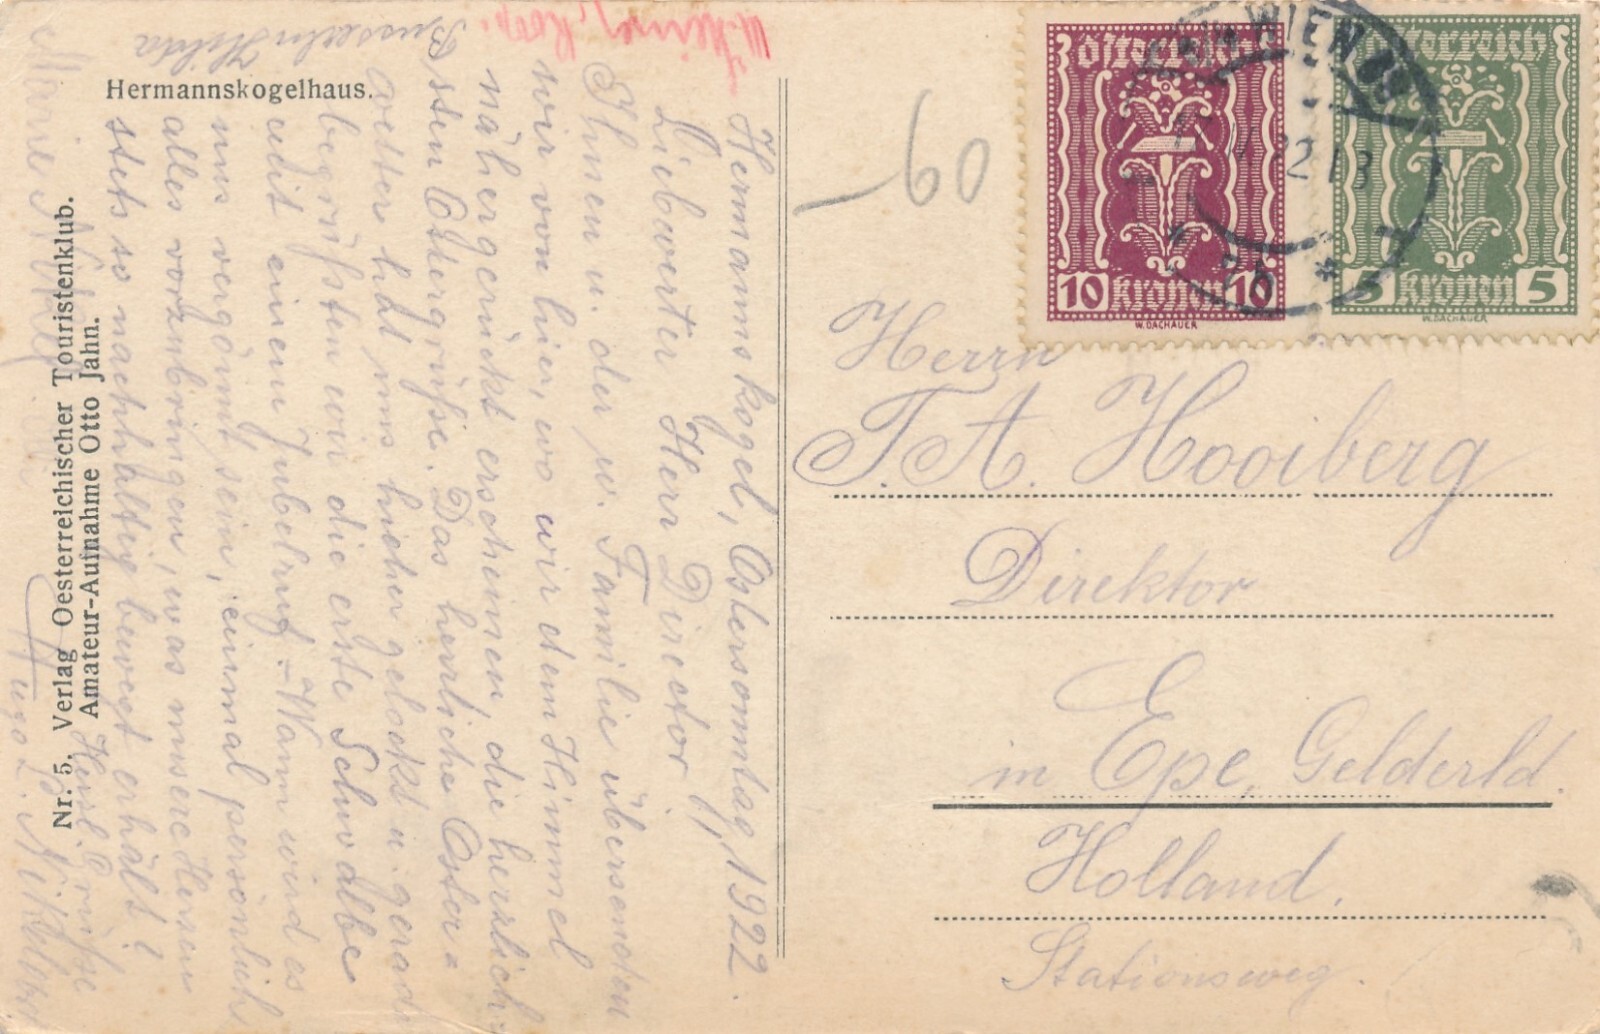 Hermannskogelhaus.
Nr. 5. Verlag Oesterreichischer Touristenklub.
Amateur-Aufnahme Otto Jahn.
Hermannskogel, Ostersonntag, 1922
Liebwerter Herr Director!
Ihnen u. der w. Familie übersenden
wir von hier, wo wir dem Himmel
näher gerückt erscheinen, die herzlich-
sten Ostergrüße. Das herrliche Oster=
wetter hat uns hieher gelockt u. gerade
begrüßten wir die erste Schwalbe
mit einem Jubelruf. – Wann wird es
uns vergönnt sein, einmal persönlich
alles vorzubringen, was unsere Herzen
stets so nachhaltig bewegt erhält?
Herzl. Grüße
Hugo
Hilda
Marie
-60
österreich
10 kronen 10
W. DACHAUER
österreich
5 kronen 5
W. DACHAUER
WIEN 89
22 13
* 2b *
Herrn
T. A. Hooiberg
Direktor
in Epe, Gelderld.
Holland.
Stationsweg.